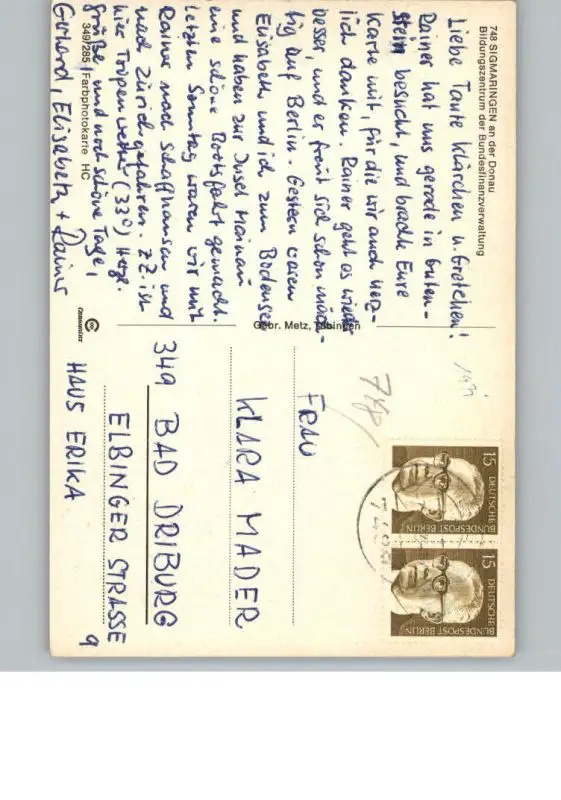 748 SIGMARINGEN an der Donau
Bildungszentrum der Bundesfinanzverwaltung
Liebe Tante Klärchen u. Gretchen!
Rainer hat uns gerade in Guten-
stein besucht, und brachte Eure
Karte mit, für die wir auch herz-
lich danken. Rainer geht es wieder
besser, und er freut sich schon mäch-
tig auf Berlin. Gestern waren
Elisabeth und ich zum Bodensee
und haben zur Insel Mainau
eine schöne Bootsfahrt gemacht.
Letzten Sonntag waren wir mit
Rainer nach Schaffhausen und
nach Zürich gefahren. z.Z. ist
hier Tropenwetter (33°) Herzl.
Grüße, und noch schöne Tage,
Gerhard, Elisabeth + Rainer
349/285 Farbphotokarte HC
Gebr. Metz, Tübingen
FRAU
KLARA MADER
349 BAD DRIBURG
ELBINGER STRASSE 9
HAUS ERIKA
15 DEUTSCHE BUNDESPOST BERLIN
15 DEUTSCHE BUNDESPOST BERLIN